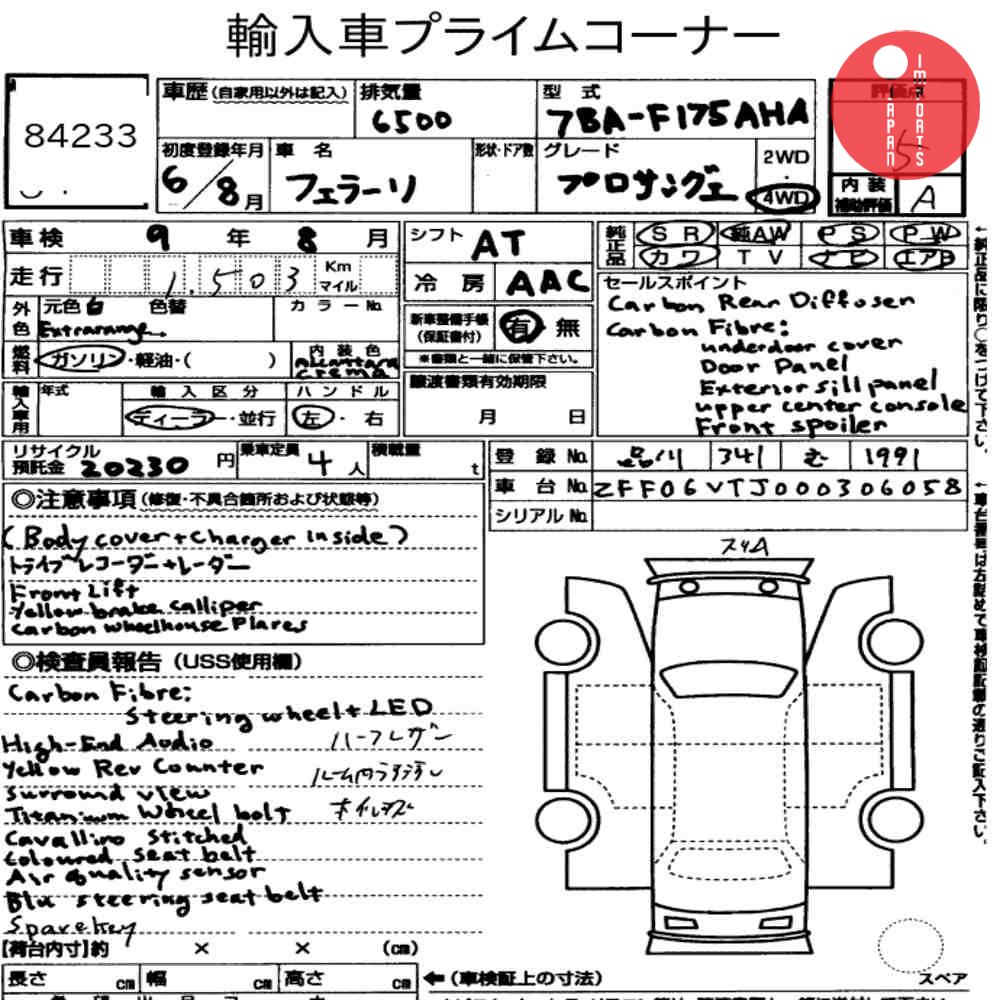 輸入車プライムコーナー
JAPAN IMPORTS
84233
車歴(自家用以外は記入)
排気量
6500
型式
7BA-F175AHA
評価点
5
初度登録年月
6/8月
車名
フェラーリ
形状・ドア数
グレード
プロサングエ
2WD
4WD
内装
補助評価
A
車検 9年 8月
シフト AT
純正品 SR 純AW PS PW
カワ TV ナビ エアB
走行 1,503 Km マイル
冷房 AAC
セールスポイント
Carbon Rear Diffuser
Carbon Fibre:
underdoor cover
Door Panel
Exterior sill panel
upper center console
Front spoiler
外色 元色 白 色替 カラーNo.
Extrarange
新車整備手帳(保証書付) 有 無
※書類と一緒に保管下さい。
燃料 ガソリン・軽油・( )
内装色
alcantara
crema
譲渡書類有効期限
月 日
輸入車用 年式 輸入区分 ハンドル
ディーラー・並行 左・右
リサイクル預託金 20230円
乗車定員 4人
積載量 t
登録No. 品川 341 む 1991
車台No. ZFF06VTJ000306058
シリアルNo.
◎注意事項(修復・不具合箇所および状態等)
(Body cover + charger inside)
ドライブレコーダー+レーダー
Front Lift
Yellow brake calliper
Carbon wheelhouse Plares
スリム
◎検査員報告(USS使用欄)
Carbon Fibre:
Steering wheel + LED
High-End Audio
ハーフレザー
Yellow Rev Counter
Surround view
Titanium Wheel bolt
Cavallino Stitched
Coloured seat belt
Air quality sensor
Blu steering seat belt
Spare key
[荷台内寸]約 × × (cm)
長さ cm 幅 cm 高さ cm
←(車検証上の寸法)
スペア